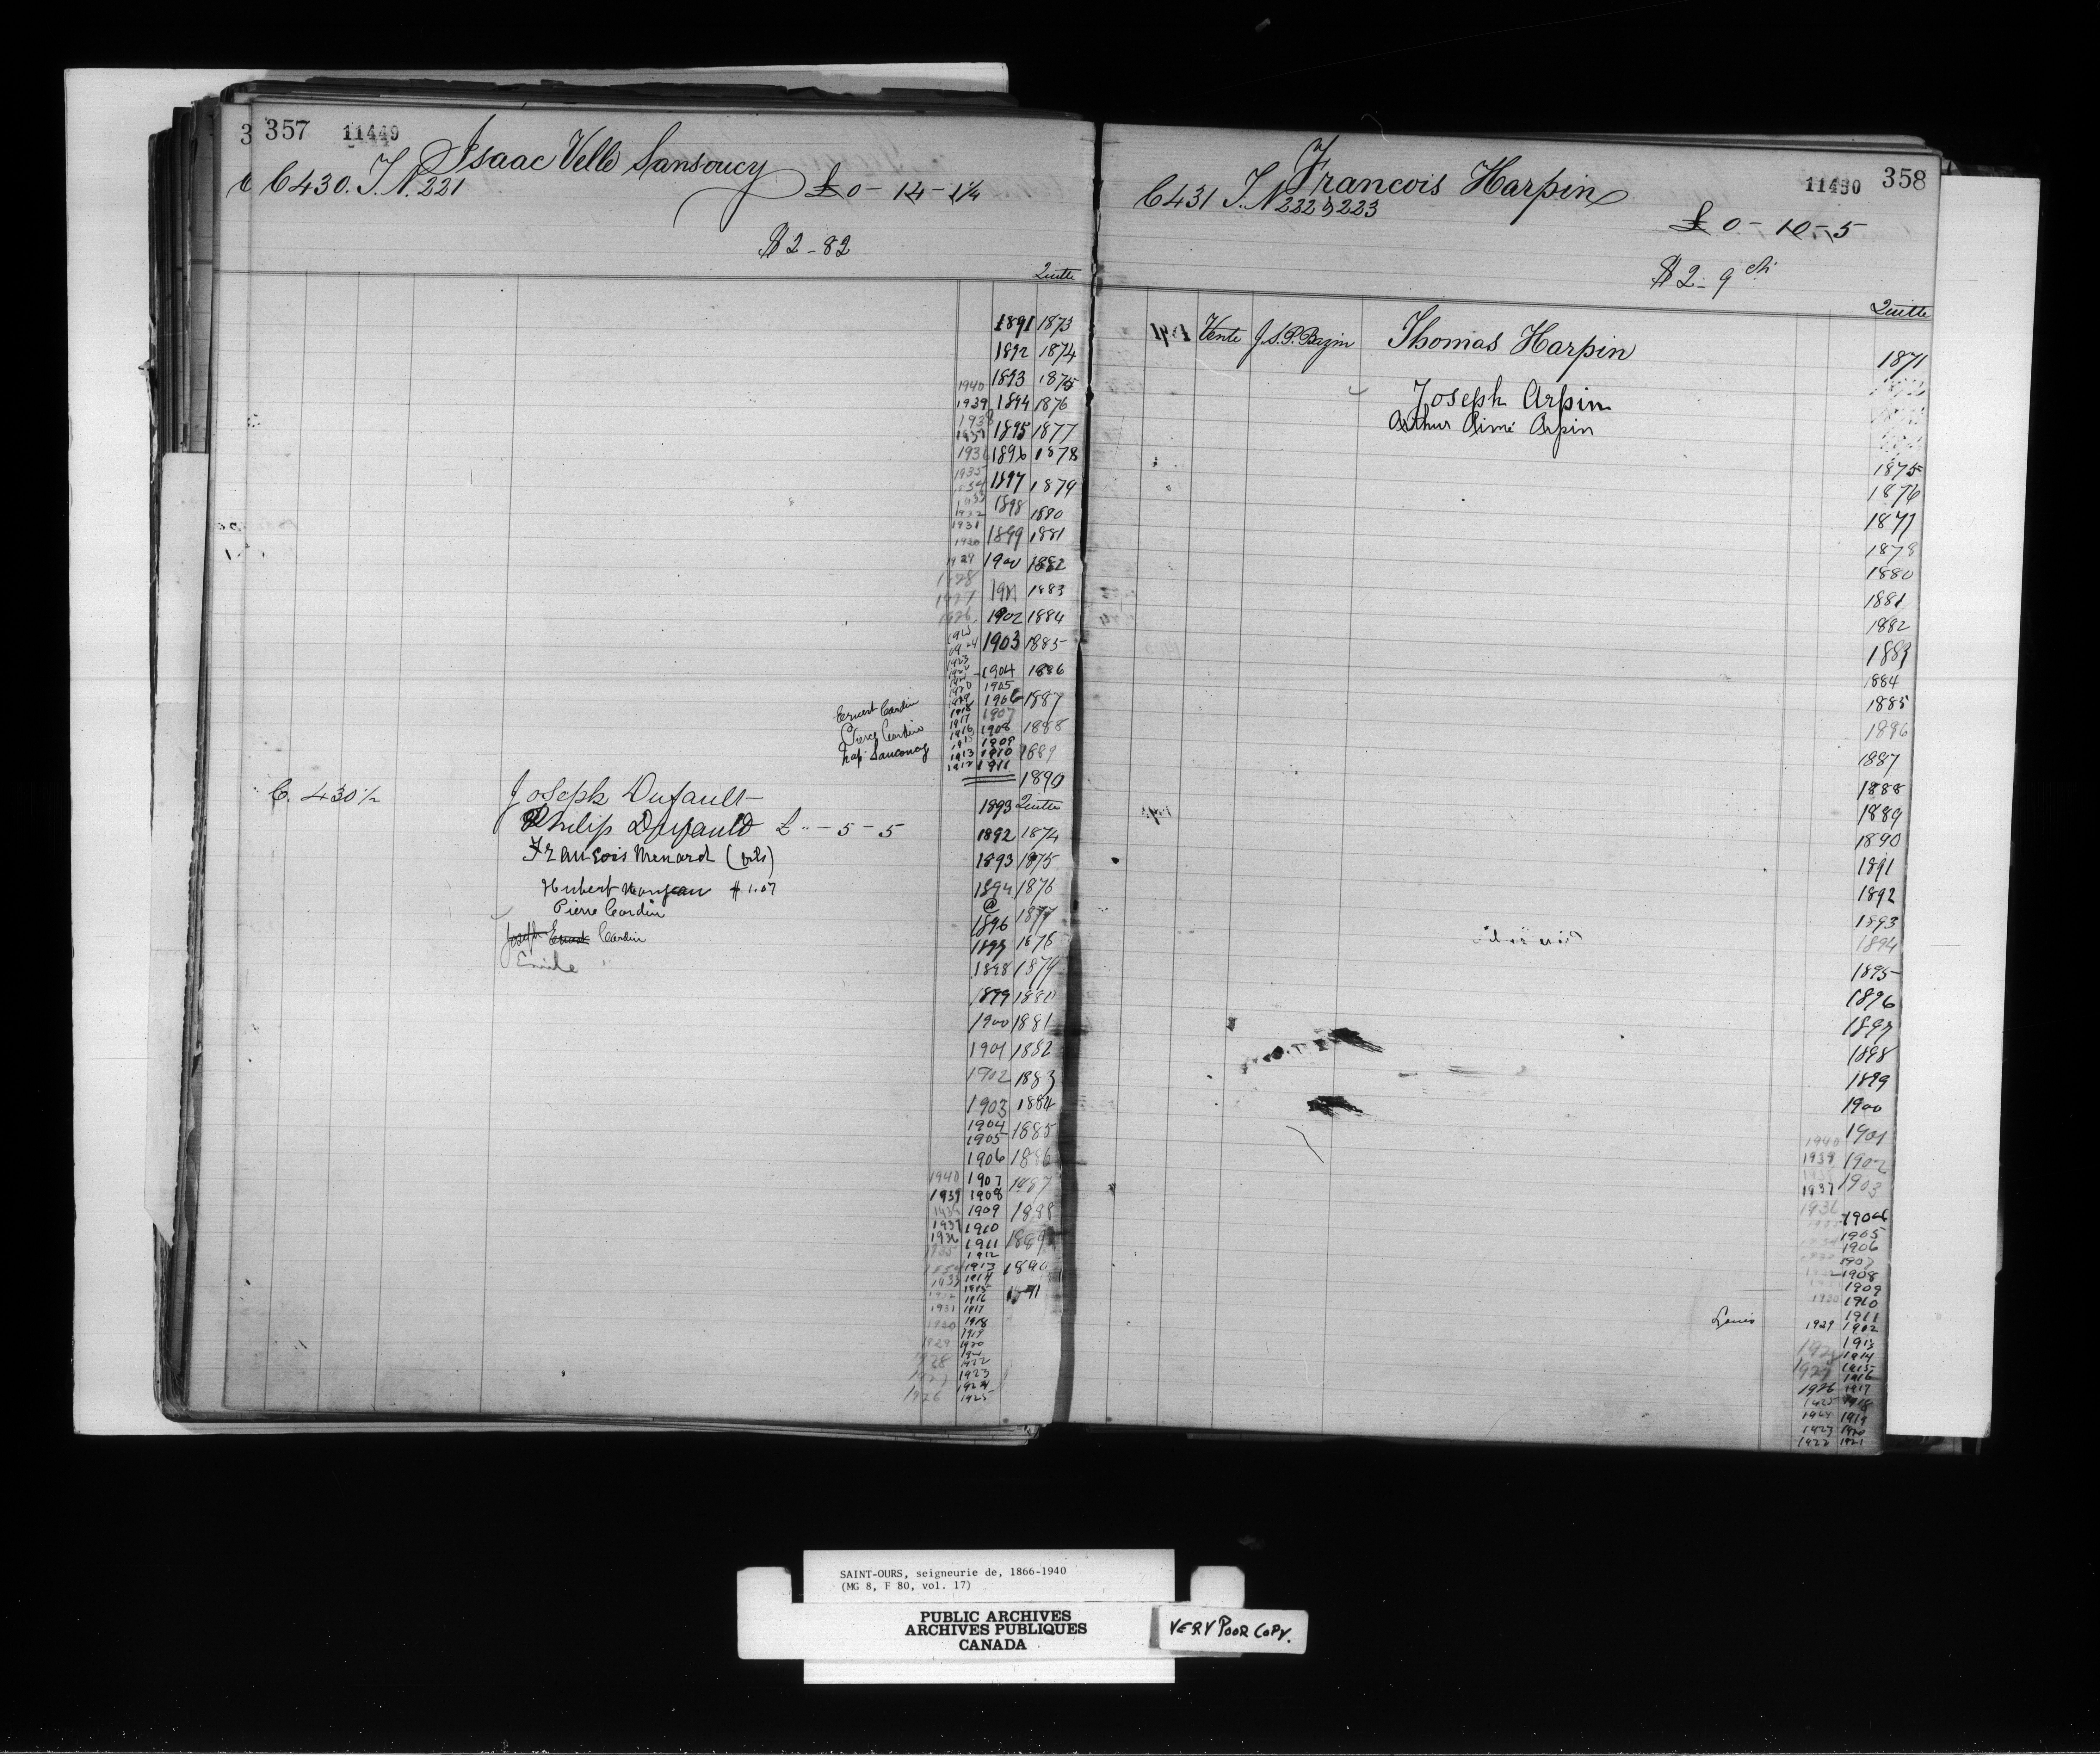 357 11449
Isaac Velle Sansoucy
C 430. T. N. 221 £ 0 - 14 - 1 1/4
$ 2 - 82
Quitte
1891 1873
1892 1874
1893 1875
1940
1939 1894 1876
1938
1937 1895 1877
1896 1878
1935 1897 1879
1898 1880
1932
1931 1899 1881
1930
1929 1900 1882
1928 1901 1883
1927
1926 1902 1884
1903 1885
1923
1904 1886
1905
1906 1887
Ernest Cardin 1918 1907
1917
Pierre Cardin 1916 1908 1888
1909
1913 1910 1889
1912 1911
1890
C. 430 1/2 Joseph Dufault 1893 Quitte
Philip Dufault £ " - 5 - 5 1892 1874
François Menard (fils) 1893 1875
Hubert $ 1.07 1894 1876
Pierre Cardin @ 1877
1896
Joseph Ernest Cardin 1897 1878
Emile " 1898 1879
1899 1880
1900 1881
1901 1882
1902 1883
1903 1884
1904 1885
1905
1906 1886
1940 1907 1887
1939 1908
1909 1888
1937 1910
1936 1911 1889
1935 1912
1934 1913 1890
1933 1914
1932 1915 1891
1916
1931 1917
1930 1918
1919
1929 1920
1921
1928 1922
1927 1923
1924
1926 1925
11450 358
Francois Harpin
C 431 T. N 222 & 223
£ 0 - 10 - 5
$ 2 - 9 cts
Quitte
1871 Vente J.S.P. Bazin Thomas Harpin 1871
Joseph Arpin
Arthur Aimé Arpin
1875
1876
1877
1878
1880
1881
1882
1883
1884
1885
1886
1887
1888
1889
1890
1891
1892
1893
1894
1895
1896
1897
1898
1899
1900
1901
1940
1939 1902
1937 1903
1936
1904
1905
1906
1907
1908
1909
1930 1910
1911
Louis 1929 1912
1913
1928 1914
1927 1915
1916
1926 1917
1925 1918
1924 1919
1923 1920
1922 1921
SAINT-OURS, seigneurie de, 1866-1940
(MG 8, F 80, vol. 17)
PUBLIC ARCHIVES
ARCHIVES PUBLIQUES
CANADA
VERY POOR COPY.